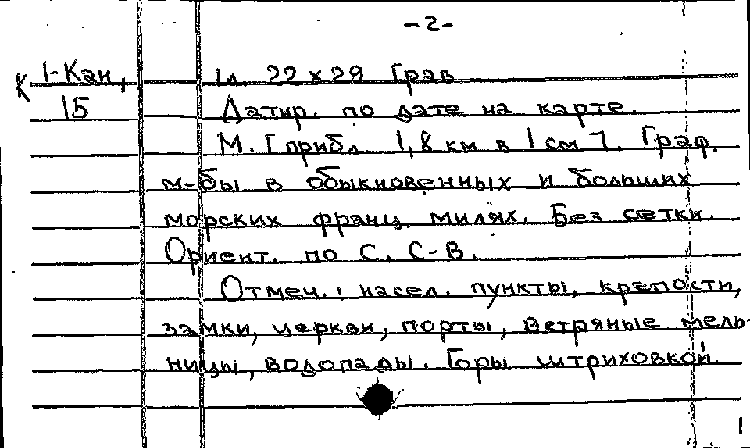 -2-
К 1-Кан, 1л 22 x 29 Грав
15 Датир. по дате на карте.
М. [прибл. 1,8 км в 1 см]. Граф.
м-бы в обыкновенных и больших
морских франц. милях. Без сетки.
Ориент. по С. С-В.
Отмеч.: насел. пункты, крепости,
замки, церкви, порты, ветряные мель-
ницы, водопады. Горы штриховкой.